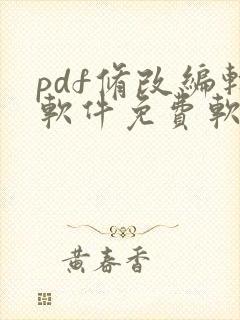 pdf修改編輯
軟件免費軟
黃春香